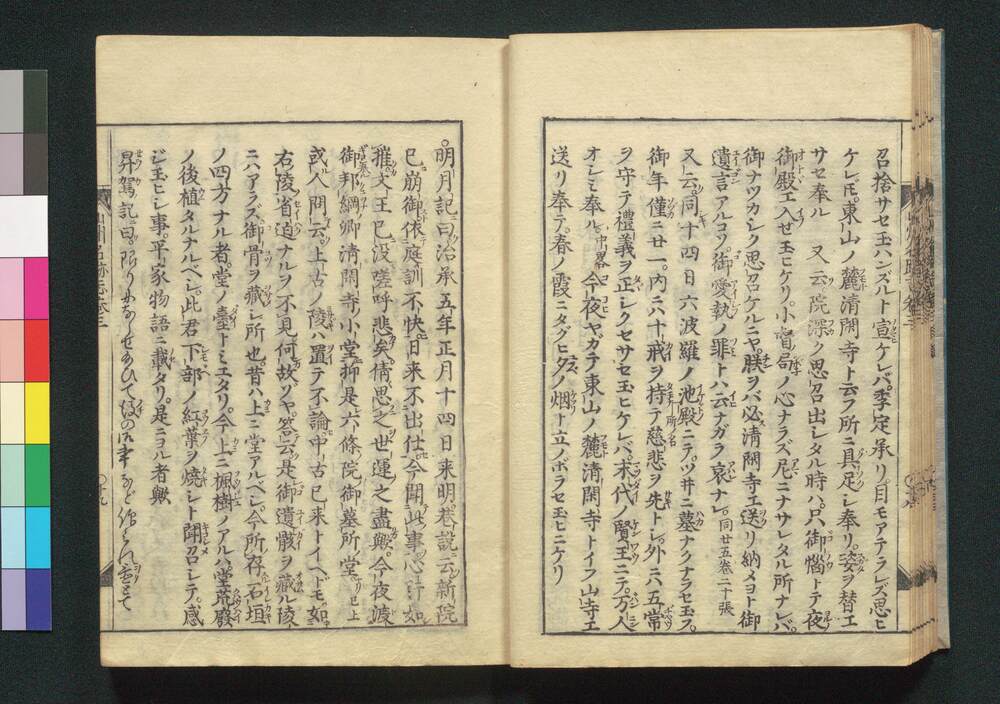 召捨サセ玉ハンズルト宣ケレバ。季定承リ。目モアテラレズ思ヒ
ケレドモ。東山ノ麓清閑寺ト云フ所ニ具足シ奉リ。姿ヲ替エ
サセ奉ル 又云院深ク思召出シタル時ハ。只御惱トテ夜
御殿エ入ゼ玉ヒケリ。小督局ノ心ナラズ尼ニナサレタル所ナレバ。
御ナツカシク思召ケルニヤ。朕ヲバ必清閑寺エ送リ納メヨト御
遺言アルコソ。御愛執ノ罪トハ云ナガラ哀ナレ。同廿五卷二十張
又云。同十四日六波羅ノ池殿ニテ。ツ井ニ墓ナクナラセ玉フ。
御年僅ニ廿一。内ニハ十戒ヲ持テ慈悲ヲ先トシ。外ニハ五常
ヲ守テ禮義ヲ正シクセサセ玉ヒケレバ。末代ノ賢王ニテ。万人
オシミ奉ル。中畧 今夜ヤカテ東山ノ麓清閑寺トイフ山寺エ
送リ奉テ。春ノ霞ニタグヒ夕ノ烟ト立ノボラセ玉ヒニケリ
明月記曰治承五年正月十四日来明巷説云新院
已崩御依庭訓不快日来不出仕今聞此事心肝如
摧文王已没嗟呼悲矣倩思之世運之盡歟。今夜渡
御邦綱卿清閑寺小堂抑是六條院御墓所堂已上
或人問云。上古ノ陵ハ置テ不論中古已来トイヘドモ。如
右陵省遠ナルヲ不見何故ソヤ。答云是御遺骸ヲ藏ル陵
ニハアラズ御骨ヲ藏シ所也。昔ハ上ニ堂アルベシ。今所存石垣
ノ四方ナル者。堂ノ臺トミエタリ。今上ニ楓樹ノアルハ堂荒廢
ノ後植タルナルベシ。此君下部ノ紅葉ヲ焼シト聞召シテ。感
ジ玉ヒシ事。平家物語ニ載タリ。是ニヨル者歟
昇駕記曰。限りあ